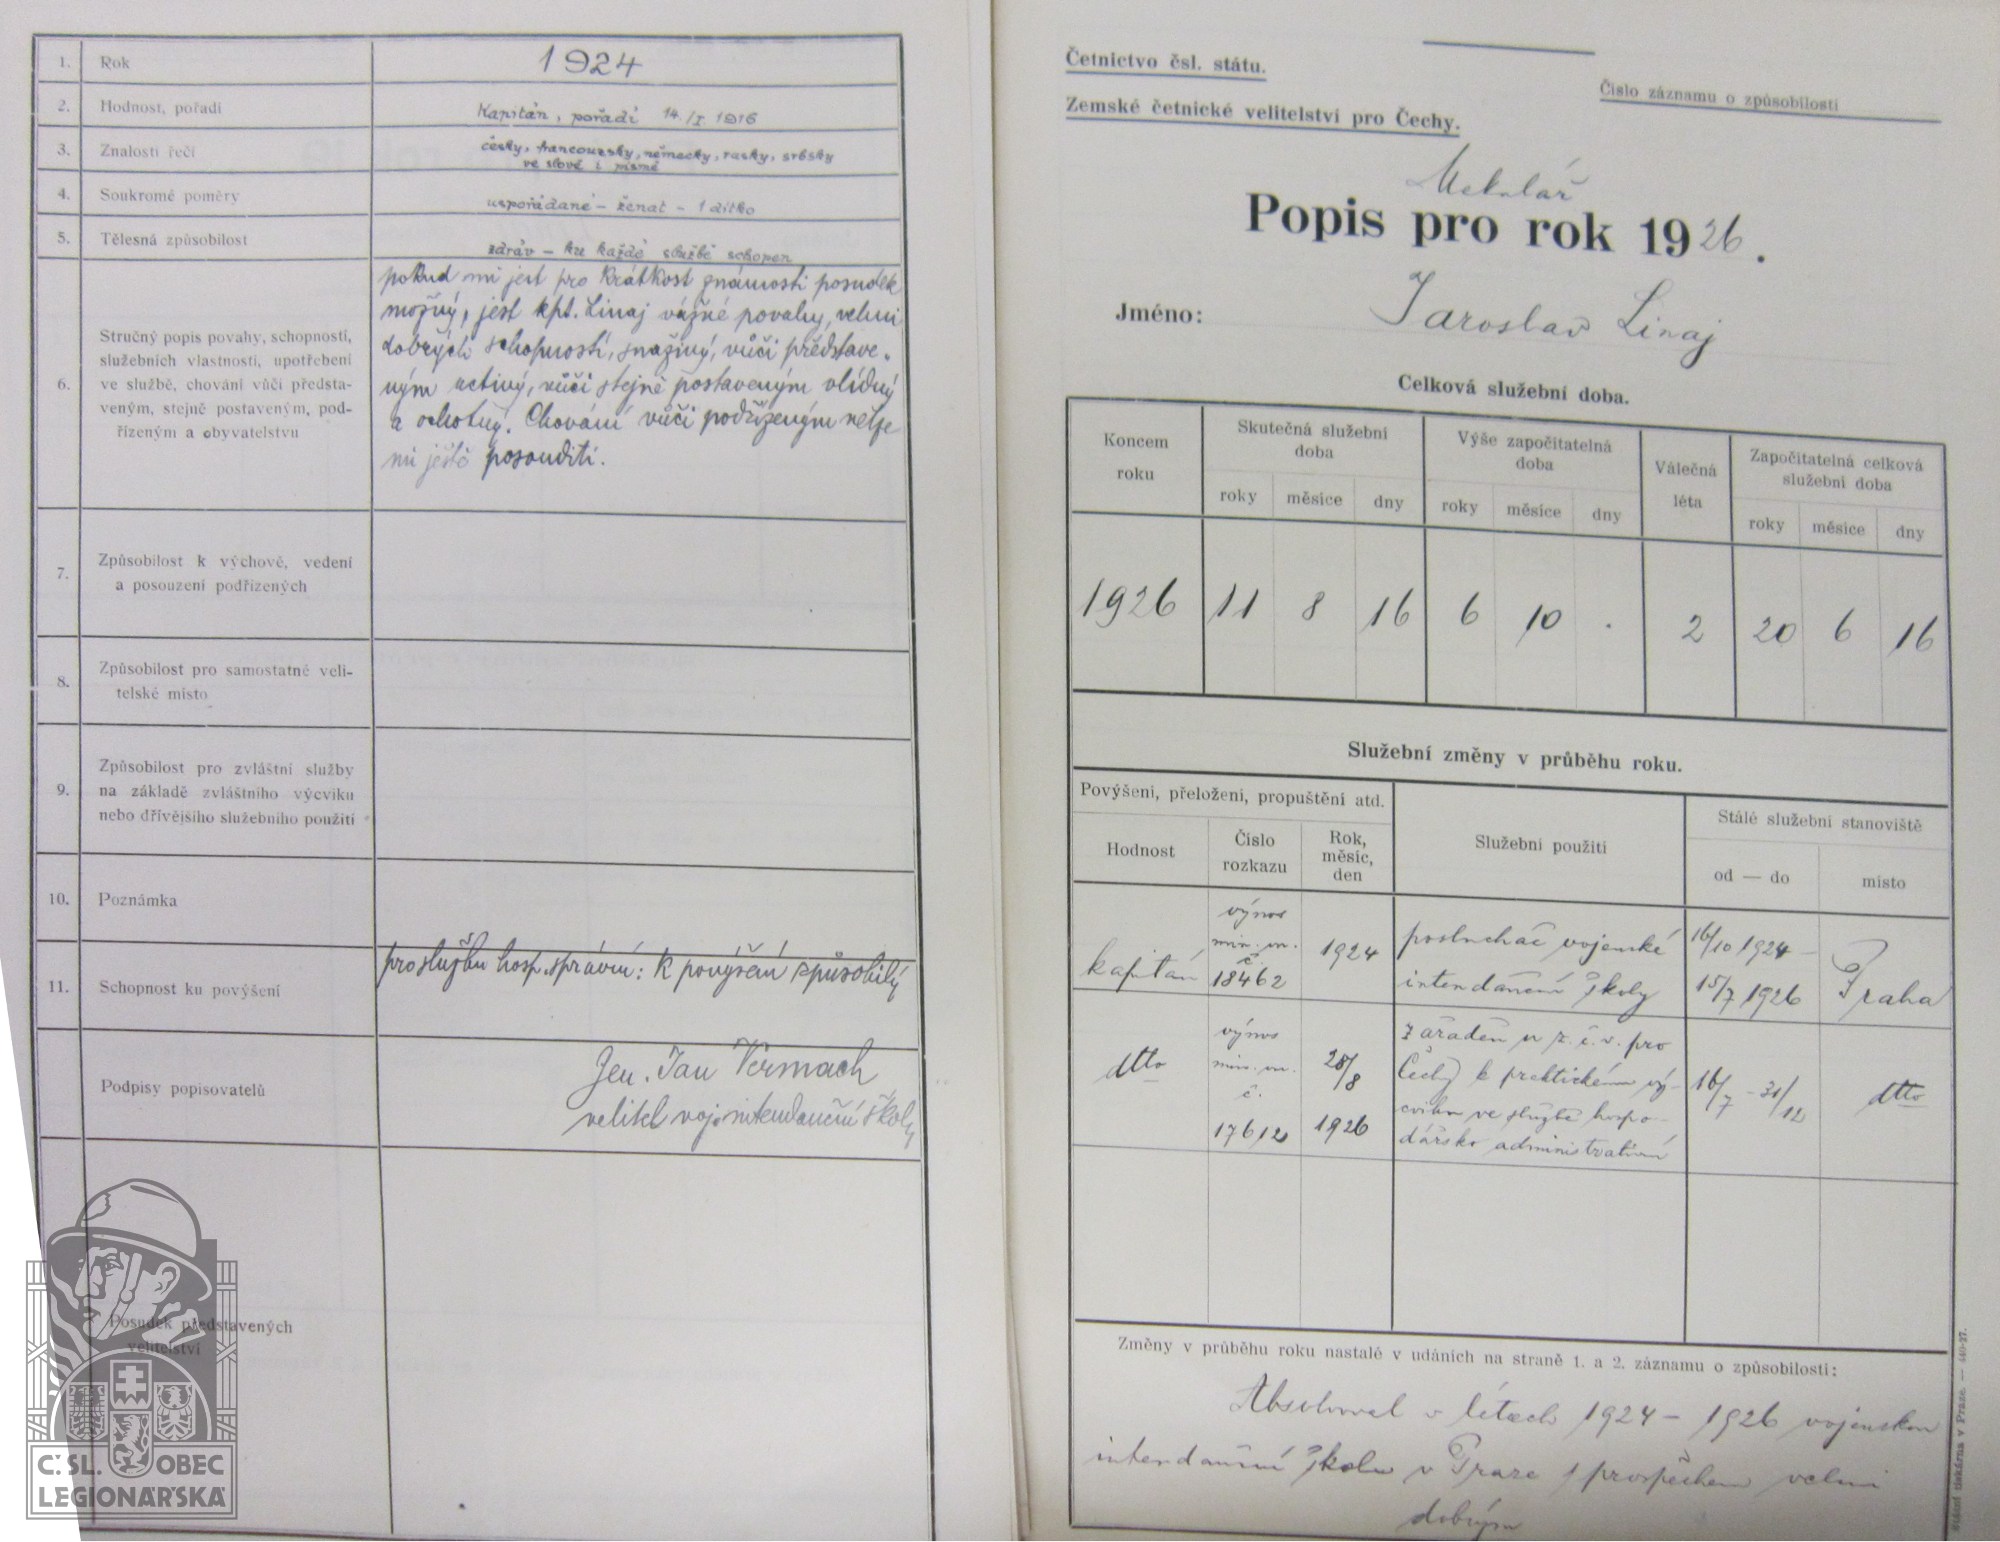 1. Rok 1924
2. Hodnost, pořadí Kapitán, pořadí 14./I. 1916
3. Znalosti řečí česky, francouzsky, německy, rusky, srbsky
ve slově i písmě
4. Soukromé poměry uspořádané - ženat - 1 dítko
5. Tělesná způsobilost zdráv - ku každé službě schopen
6. Stručný popis povahy, schopností,
služebních vlastností, upotřebení
ve službě, chování vůči předsta-
veným, stejně postaveným, pod-
řízeným a obyvatelstvu
pokud mi jest pro krátkost známosti posudek
možný, jest kpt. Linaj vážné povahy, velmi
dobrých schopností, snaživý, vůči představe-
ným uctivý, vůči stejně postaveným vlídný
a ochotný. Chování vůči podřízeným nelze
mi ještě posouditi.
7. Způsobilost k výchově, vedení
a posouzení podřízených
8. Způsobilost pro samostatné veli-
telské místo
9. Způsobilost pro zvláštní služby
na základě zvláštního výcviku
nebo dřívějšího služebního použití
10. Poznámka
11. Schopnost ku povýšení pro službu hosp. správní: k povýšení způsobilý
Podpisy popisovatelů Jen. Jan Věrmach
velitel voj. intendanční školy
Posudek představených
velitelství
Č. SL. OBEC
LEGIONÁŘSKÁ
Četnictvo čsl. státu.
Číslo záznamu o způsobilosti
Zemské četnické velitelství pro Čechy.
Popis pro rok 1926.
Jméno: Jaroslav Linaj
Celková služební doba.
Koncem
roku
Skutečná služební
doba
Výše započitatelná
doba
Válečná
léta
Započítatelná celková
služební doba
roky měsíce dny roky měsíce dny roky měsíce dny
1926 11 8 16 6 10 . 2 20 6 16
Služební změny v průběhu roku.
Povýšení, přeložení, propuštění atd.
Služební použití
Stálé služební stanoviště
Hodnost
Číslo
rozkazu
Rok,
měsíc,
den
od — do
místo
kapitán
výnos
min. vn.
č.
18462
1924
posluchač vojenské
intendanční školy
16/10 1924 -
15/7 1926
Praha
dtto
výnos
min. vn.
č.
17612
28/8
1926
zařaděn u z. č. v. pro
Čechy k praktickému vý-
cviku ve službě hospo-
dářsko administrativní
16/7 - 31/12
dtto
Změny v průběhu roku nastalé v udáních na straně 1. a 2. záznamu o způsobilosti:
Absolvoval v létech 1924 - 1926 vojenskou
intendanční školu v Praze s prospěchem velmi
dobrým
Státní tiskárna v Praze. — 440-27.